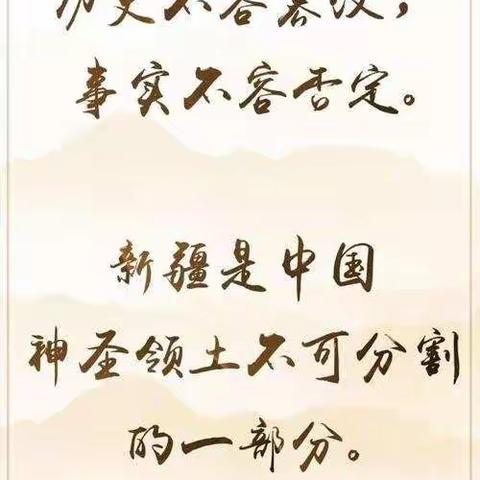 历史不容
事实不容否定。
新疆是中国
神圣领土不可分割
的一部分。